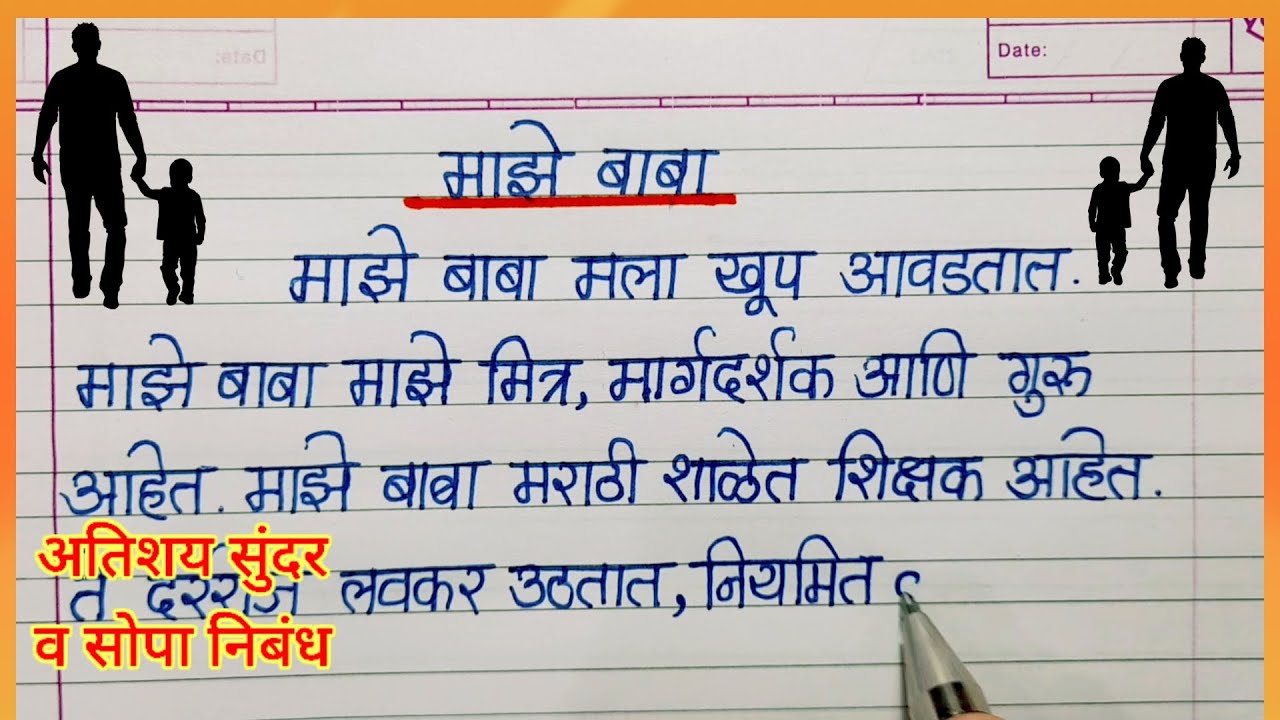 Date:
माझे बाबा
माझे बाबा मला खूप आवडतात.
माझे बाबा माझे मित्र, मार्गदर्शक आणि गुरू
आहेत. माझे बाबा मराठी शाळेत शिक्षक आहेत.
ते दररोज लवकर उठतात, नियमित
अतिशय सुंदर
व सोपा निबंध